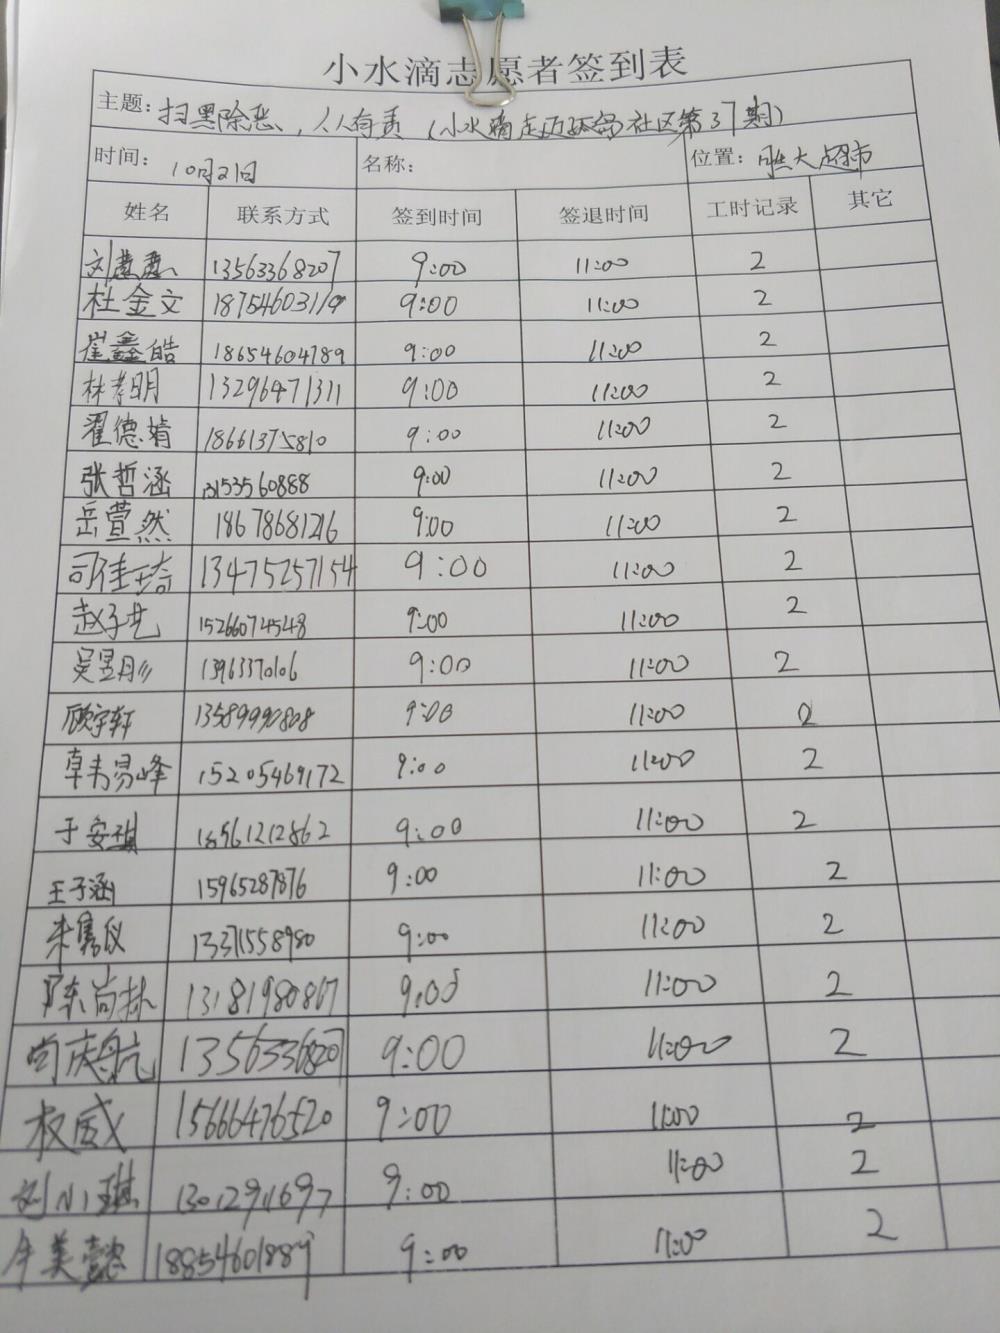 小水滴志愿者签到表
主题：扫黑除恶，人人有责（小水滴走进孤岛社区第37期）
时间：10月21日 名称： 位置：胜大超市
姓名 联系方式 签到时间 签退时间 工时记录 其它
刘慧慧 13563368207 9:00 11:00 2
杜金文 18754603119 9:00 11:00 2
崔鑫皓 18654604789 9:00 11:00 2
林孝明 13296471311 9:00 11:00 2
翟德婧 18661375810 9:00 11:00 2
张哲涵 13153560888 9:00 11:00 2
岳萱然 18678681216 9:00 11:00 2
司佳琦 13475257154 9:00 11:00 2
赵子艺 15266074548 9:00 11:00 2
吴昱彤 13963370106 9:00 11:00 2
顾宇轩 13589990808 9:00 11:00 2
卓韦易峰 15205469172 9:00 11:00 2
于安琪 18561212862 9:00 11:00 2
王子涵 15965287876 9:00 11:00 2
朱隽仪 13371558980 9:00 11:00 2
陈尚林 13181980867 9:00 11:00 2
尚庆航 13563368207 9:00 11:00 2
权威 15666476520 9:00 11:00 2
刘小琪 13012911697 9:00 11:00 2
美懿 18854601889 9:00 11:00 2